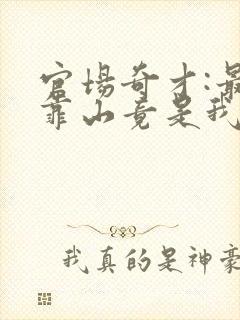 官场奇才:最
靠山竟是我
我真的是神豪